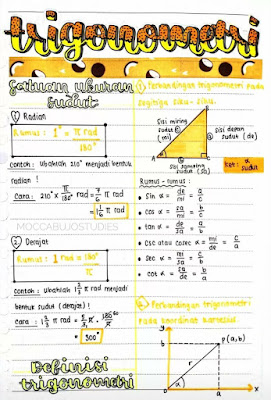 trigonometri
Satuan ukuran
sudut:
1 Radian
Rumus : 1° = π rad
180°
contoh : Ubahlah 210° menjadi bentuk
radian !
Cara : 210° × π/180 rad = 7/6 π rad
= 1 1/6 π rad
MOCCABUJOSTUDIES
2 Derajat
Rumus : 1 rad = 180°
π
contoh : Ubahlah 1 2/3 π rad menjadi
bentuk sudut (derajat) !
cara : 1 2/3 π rad =
= 300°
Definisi
trigonometri
Perbandingan trigonometri pada
segitiga siku-siku.
Sisi miring
sudut
(mi)
sisi depan
sudut (de)
A
B
c
a
b
α
Sisi samping
sudut (sa)
Ket: α
sudut
Rumus-rumus :
• sin α = de/mi = a/c
• cos α = sa/mi = b/c
• tan α = de/sa = a/b
• csc atau cosec α = mi/de = c/a
• sec α = mi/sa = c/b
• cot α = sa/de = b/a
Perbandingan trigonometri
pada koordinat kartesius
y
b
P (a,b)
r
α
0
a
x